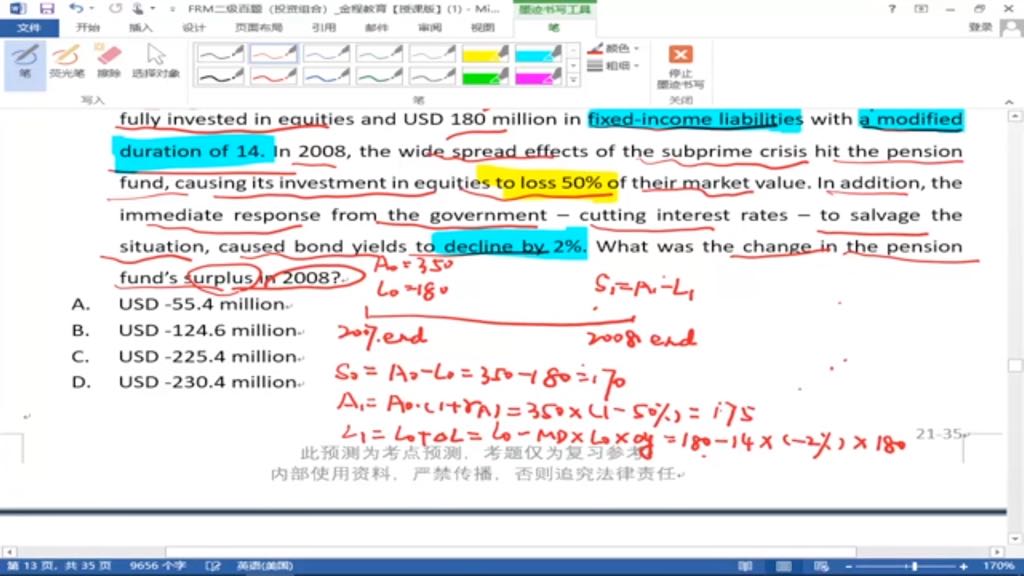 FRM二级百题（投资组合）_金程教育【授课版】(1) - Mi...
墨迹书写工具
文件 开始 插入 设计 页面布局 引用 邮件 审阅 视图 笔
登录
笔 荧光笔 擦除 选择对象
颜色
粗细
停止
墨迹书写
写入 笔 关闭
fully invested in equities and USD 180 million in fixed-income liabilities with a modified
duration of 14. In 2008, the wide spread effects of the subprime crisis hit the pension
fund, causing its investment in equities to loss 50% of their market value. In addition, the
immediate response from the government – cutting interest rates – to salvage the
situation, caused bond yields to decline by 2%. What was the change in the pension
fund's surplus in 2008?
A₀=350
L₀=180
S₁=A₁-L₁
A. USD -55.4 million
B. USD -124.6 million
2007.end 2008 end
C. USD -225.4 million
D. USD -230.4 million
S₀=A₀-L₀=350-180=170
A₁=A₀·(1+rA)=350×(1-50%)=175
L₁=L₀+ΔL=L₀-MD×L₀×Δy=180-14×(-2%)×180
21-35
此预测为考点预测，考题仅为复习参考
内部使用资料，严禁传播，否则追究法律责任
第 13 页，共 35 页 9656 个字 英语(美国) 170%